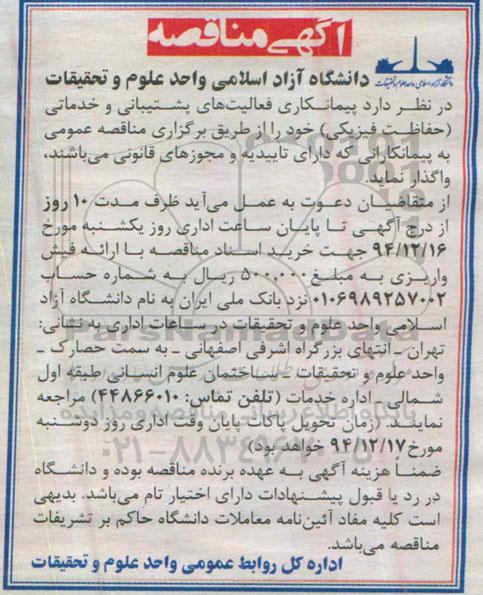 آگهی مناقصه
دانشگاه آزاد اسلامی واحد علوم و تحقیقات
دانشگاه آزاد اسلامی واحد علوم و تحقیقات
در نظر دارد پیمانکاری فعالیت‌های پشتیبانی و خدماتی
(حفاظت فیزیکی) خود را از طریق برگزاری مناقصه عمومی
به پیمانکارانی که دارای تاییدیه و مجوزهای قانونی می‌باشند،
واگذار نماید.
از متقاضیان دعوت به عمل می‌آید ظرف مدت ۱۰ روز
از درج آگهی تا پایان ساعت اداری روز یکشنبه مورخ
۹۴/۱۲/۱۶ جهت خرید اسناد مناقصه با ارائه فیش
واریزی به مبلغ ۵۰۰,۰۰۰ ریال به شماره حساب
۰۱۰۶۹۸۹۲۵۷۰۰۲ نزد بانک ملی ایران به نام دانشگاه آزاد
اسلامی واحد علوم و تحقیقات در ساعات اداری به نشانی:
تهران ـ انتهای بزرگراه اشرفی اصفهانی ـ به سمت حصارک ـ
واحد علوم و تحقیقات ـ ساختمان علوم انسانی طبقه اول
شمالی ـ اداره خدمات (تلفن تماس: ۴۴۸۶۶۰۱۰) مراجعه
نمایند. (زمان تحویل پاکات پایان وقت اداری روز دوشنبه
مورخ ۹۴/۱۲/۱۷ خواهد بود)
ضمناً هزینه آگهی به عهده برنده مناقصه بوده و دانشگاه
در رد یا قبول پیشنهادات دارای اختیار تام می‌باشد. بدیهی
است کلیه مفاد آئین‌نامه معاملات دانشگاه حاکم بر تشریفات
مناقصه می‌باشد.
اداره کل روابط عمومی واحد علوم و تحقیقات
ParsNamadData
پایگاه اطلاع رسانی مناقصه و مزایده